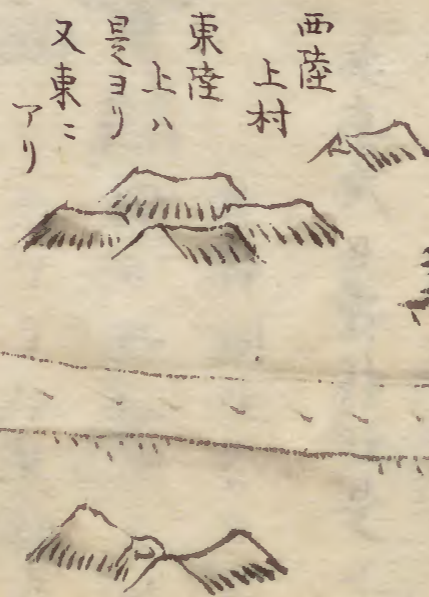 西陸
上村
東陸
上ハ
是ヨリ
又東ニ
アリ